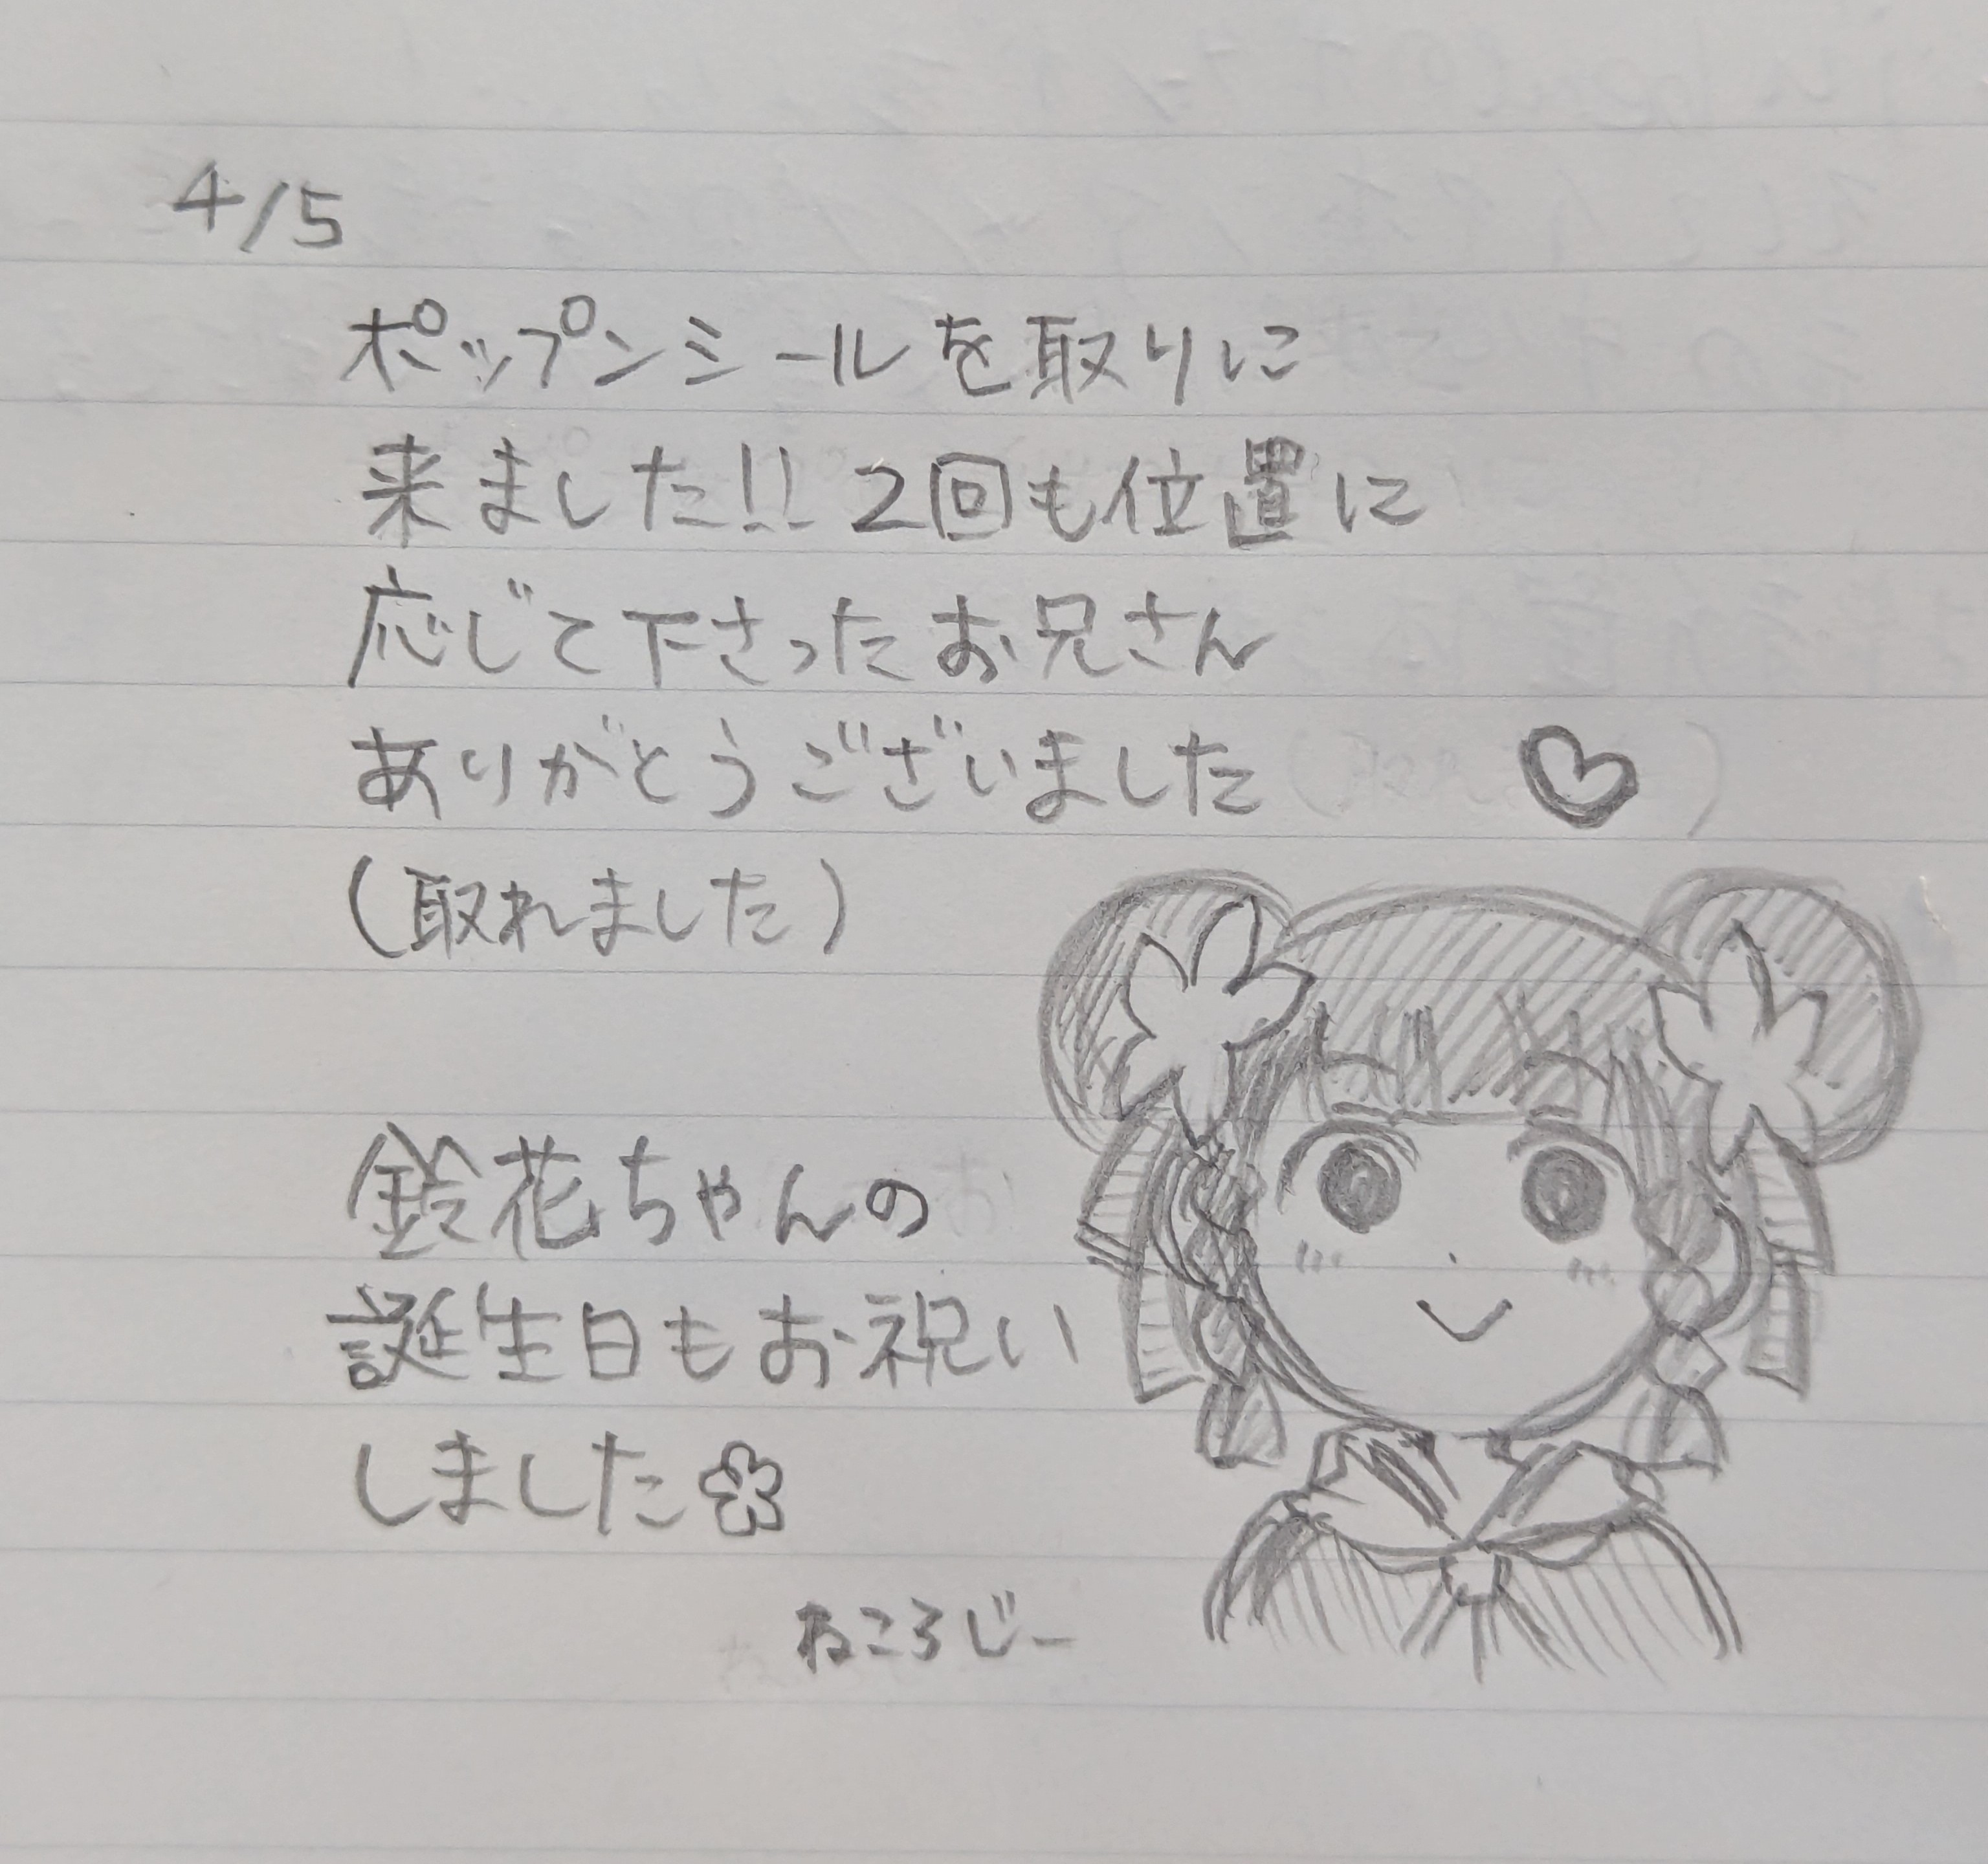 4/5
ポップンシールを取りに
来ました!! 2回も位置に
応じて下さったお兄さん
ありがとうございました
(取れました)
鈴花ちゃんの
誕生日もお祝い
しました
ねころじー